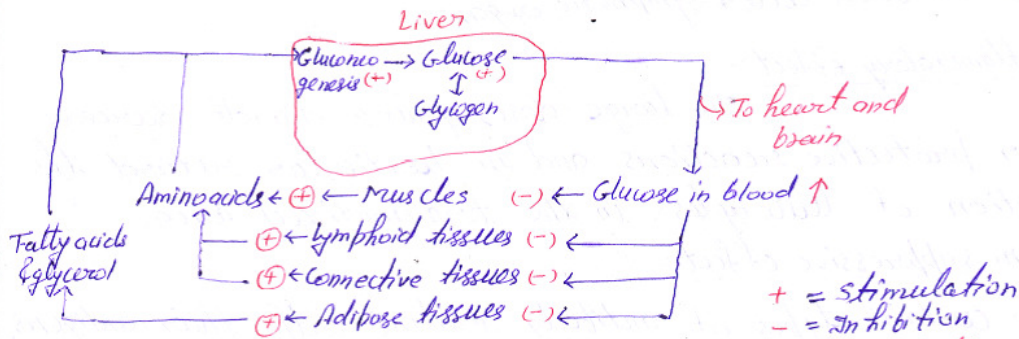 Liver
Gluconeo → Glucose
genesis (+) (+)
Glycogen
→ To heart and
brain
Aminoacids ← (+) ← Muscles (-) ← Glucose in blood ↑
Fatty acids
& glycerol
(+) ← Lymphoid tissues (-) ←
(+) ← Connective tissues (-) ←
(+) ← Adipose tissues (-) ←
+ = stimulation
- = Inhibition